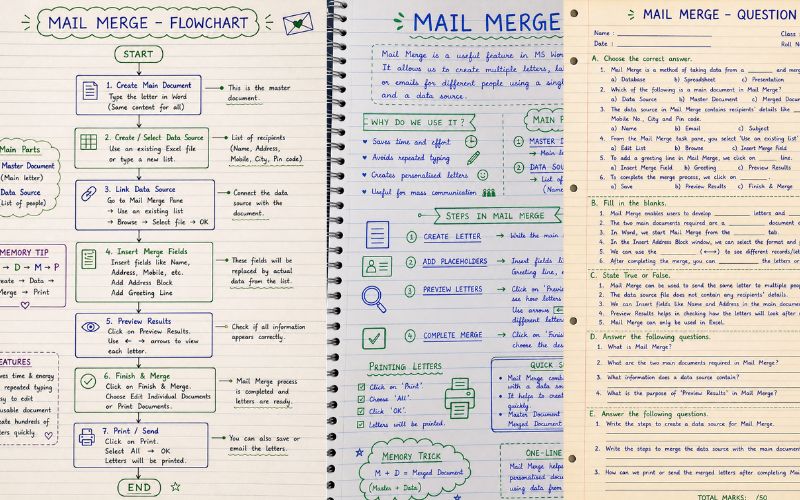 MAIL MERGE - FLOWCHART
START
1. Create Main Document
Type the letter in Word
(Same content for all)
This is the master
document.
2. Create / Select Data Source
Use an existing Excel file
or type a new list.
List of recipients
(Name, Address,
Mobile, City, Pin code)
3. Link Data Source
Go to Mail Merge Pane
→ Use an existing list
→ Browse → Select file → OK
Connect the data
source with the
document.
4. Insert Merge Fields
Insert fields like Name,
Address, Mobile, etc.
Add Address Block
Add Greeting Line
These fields will be
replaced by actual
data from the list.
5. Preview Results
Click on Preview Results.
Use ← → arrows to view
each letter.
Check if all information
appears correctly.
6. Finish & Merge
Click on Finish & Merge.
Choose Edit Individual Documents
or Print Documents.
Mail Merge process
is completed and
letters are ready.
7. Print / Send
Click on Print.
Select All → OK
Letters will be printed.
You can also save or
email the letters.
END
Main Parts
Master Document
(Main letter)
Data Source
(List of people)
MEMORY TIP
→ D → M → P
Create → Data →
Merge → Print
FEATURES
time & energy
repeated typing
to edit
document
hundreds of
quickly.
MAIL MERGE
Mail Merge is a useful feature in MS Wor
It allows us to create multiple letters, la
or emails for different people using a sing
and a data source.
WHY DO WE USE IT?
Saves time and effort
Avoids repeated typing
Creates personalised letters
Useful for mass communication
MAIN P
1 MASTER D
→ Main le
2 DATA SOU
→ List of
(Name
STEPS IN MAIL MERGE
1 CREATE LETTER → Write the main
2 ADD PLACEHOLDERS → Insert fields li
Greeting line, e
3 PREVIEW LETTERS → Click on 'Previe
see how letters
Use arrows
different letters
4 COMPLETE MERGE → Click on 'Finish
choose the des
PRINTING LETTERS
Click on 'Print'.
Choose 'All'.
Click 'OK'.
Letters will be printed.
QUICK S
Mail Merge comb
with a data sou
It helps to creat
quickly.
Master Document
Merged Document
MEMORY TRICK
M + D = Merged Document
(Master + Data)
ONE-LINE
Mail Merge helps
personalised docu
using data from
MAIL MERGE - QUESTION
Name :
Class :
Date :
Roll N
A. Choose the correct answer.
1. Mail Merge is a method of taking data from a ______ and merg
a) Database b) Spreadsheet c) Presentation
2. Which of the following is a main document in Mail Merge?
a) Data Source b) Master Document c) Merged Docum
3. The data source in Mail Merge contains recipients' details like
Mobile No., City and Pin code.
a) Name b) Email c) Subject
4. From the Mail Merge task pane, you select 'Use an existing list'
a) Edit List b) Browse c) Insert Merge Field
5. To add a greeting line in Mail Merge, we click on ______ line.
a) Insert Merge Field b) Greeting c) Preview Results
6. To complete the merge process, we click on ______.
a) Save b) Preview Results c) Finish & Merge
B. Fill in the blanks.
1. Mail Merge enables users to develop ______ letters and
2. The two main documents required are a ______ document a
3. In Word, we start Mail Merge from the ______ tab.
4. In the Insert Address Block window, we can select the format and
5. We can use the ______ (←→) to see different records/let
6. After completing the merge, you can ______ the letters or
C. State True or False.
1. Mail Merge can be used to send the same letter to multiple peop
2. The data source file does not contain any recipients' details.
3. We can insert fields like Name and Address in the main documen
4. Preview Results helps in checking how the letters will look after
5. Mail Merge can only be used in Excel.
D. Answer the following questions.
1. What is Mail Merge?
2. What are the two main documents required in Mail Merge?
3. What information does a data source contain?
4. What is the purpose of 'Preview Results' in Mail Merge?
E. Answer the following questions.
1. Write the steps to create a data source for Mail Merge.
2. Write the steps to merge the data source with the main document
3. How can we print or send the merged letters after completing Mai
TOTAL MARKS: /50